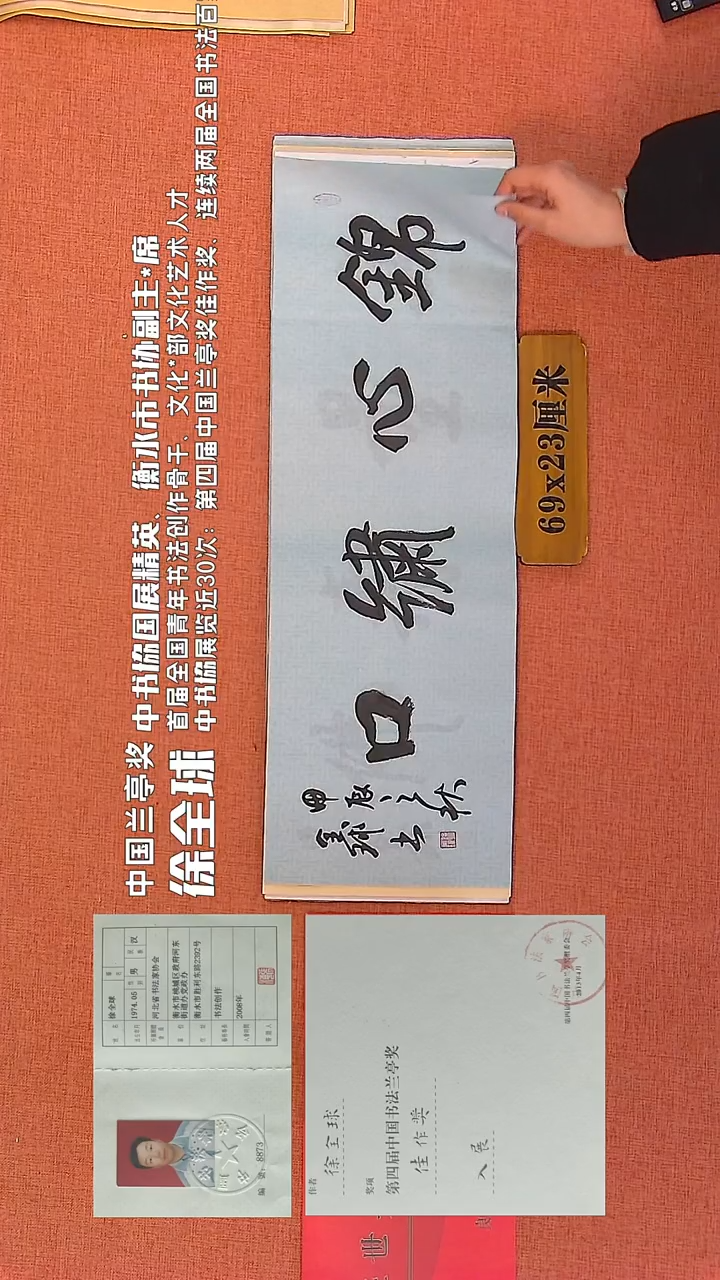 中国兰亭奖 中书协国展精英、衡水市书协副主*席
徐全球
首届全国青年书法创作骨干、文化*部文化艺术人才
中书协展览近30次：第四届中国兰亭奖佳作奖、连续两届全国书法百
錦心繡口
甲辰之秋
全球書
69x23厘米
姓名 徐全球
1974.05 性别 男 民族 汉
河北省书法家协会
衡水市桃城区政府河东
街道办党政办
衡水市胜利东路2392号
书法创作
2008年
编号: 8873
作者 徐全球
奖项
第四届中国书法兰亭奖
佳作奖
入展
世